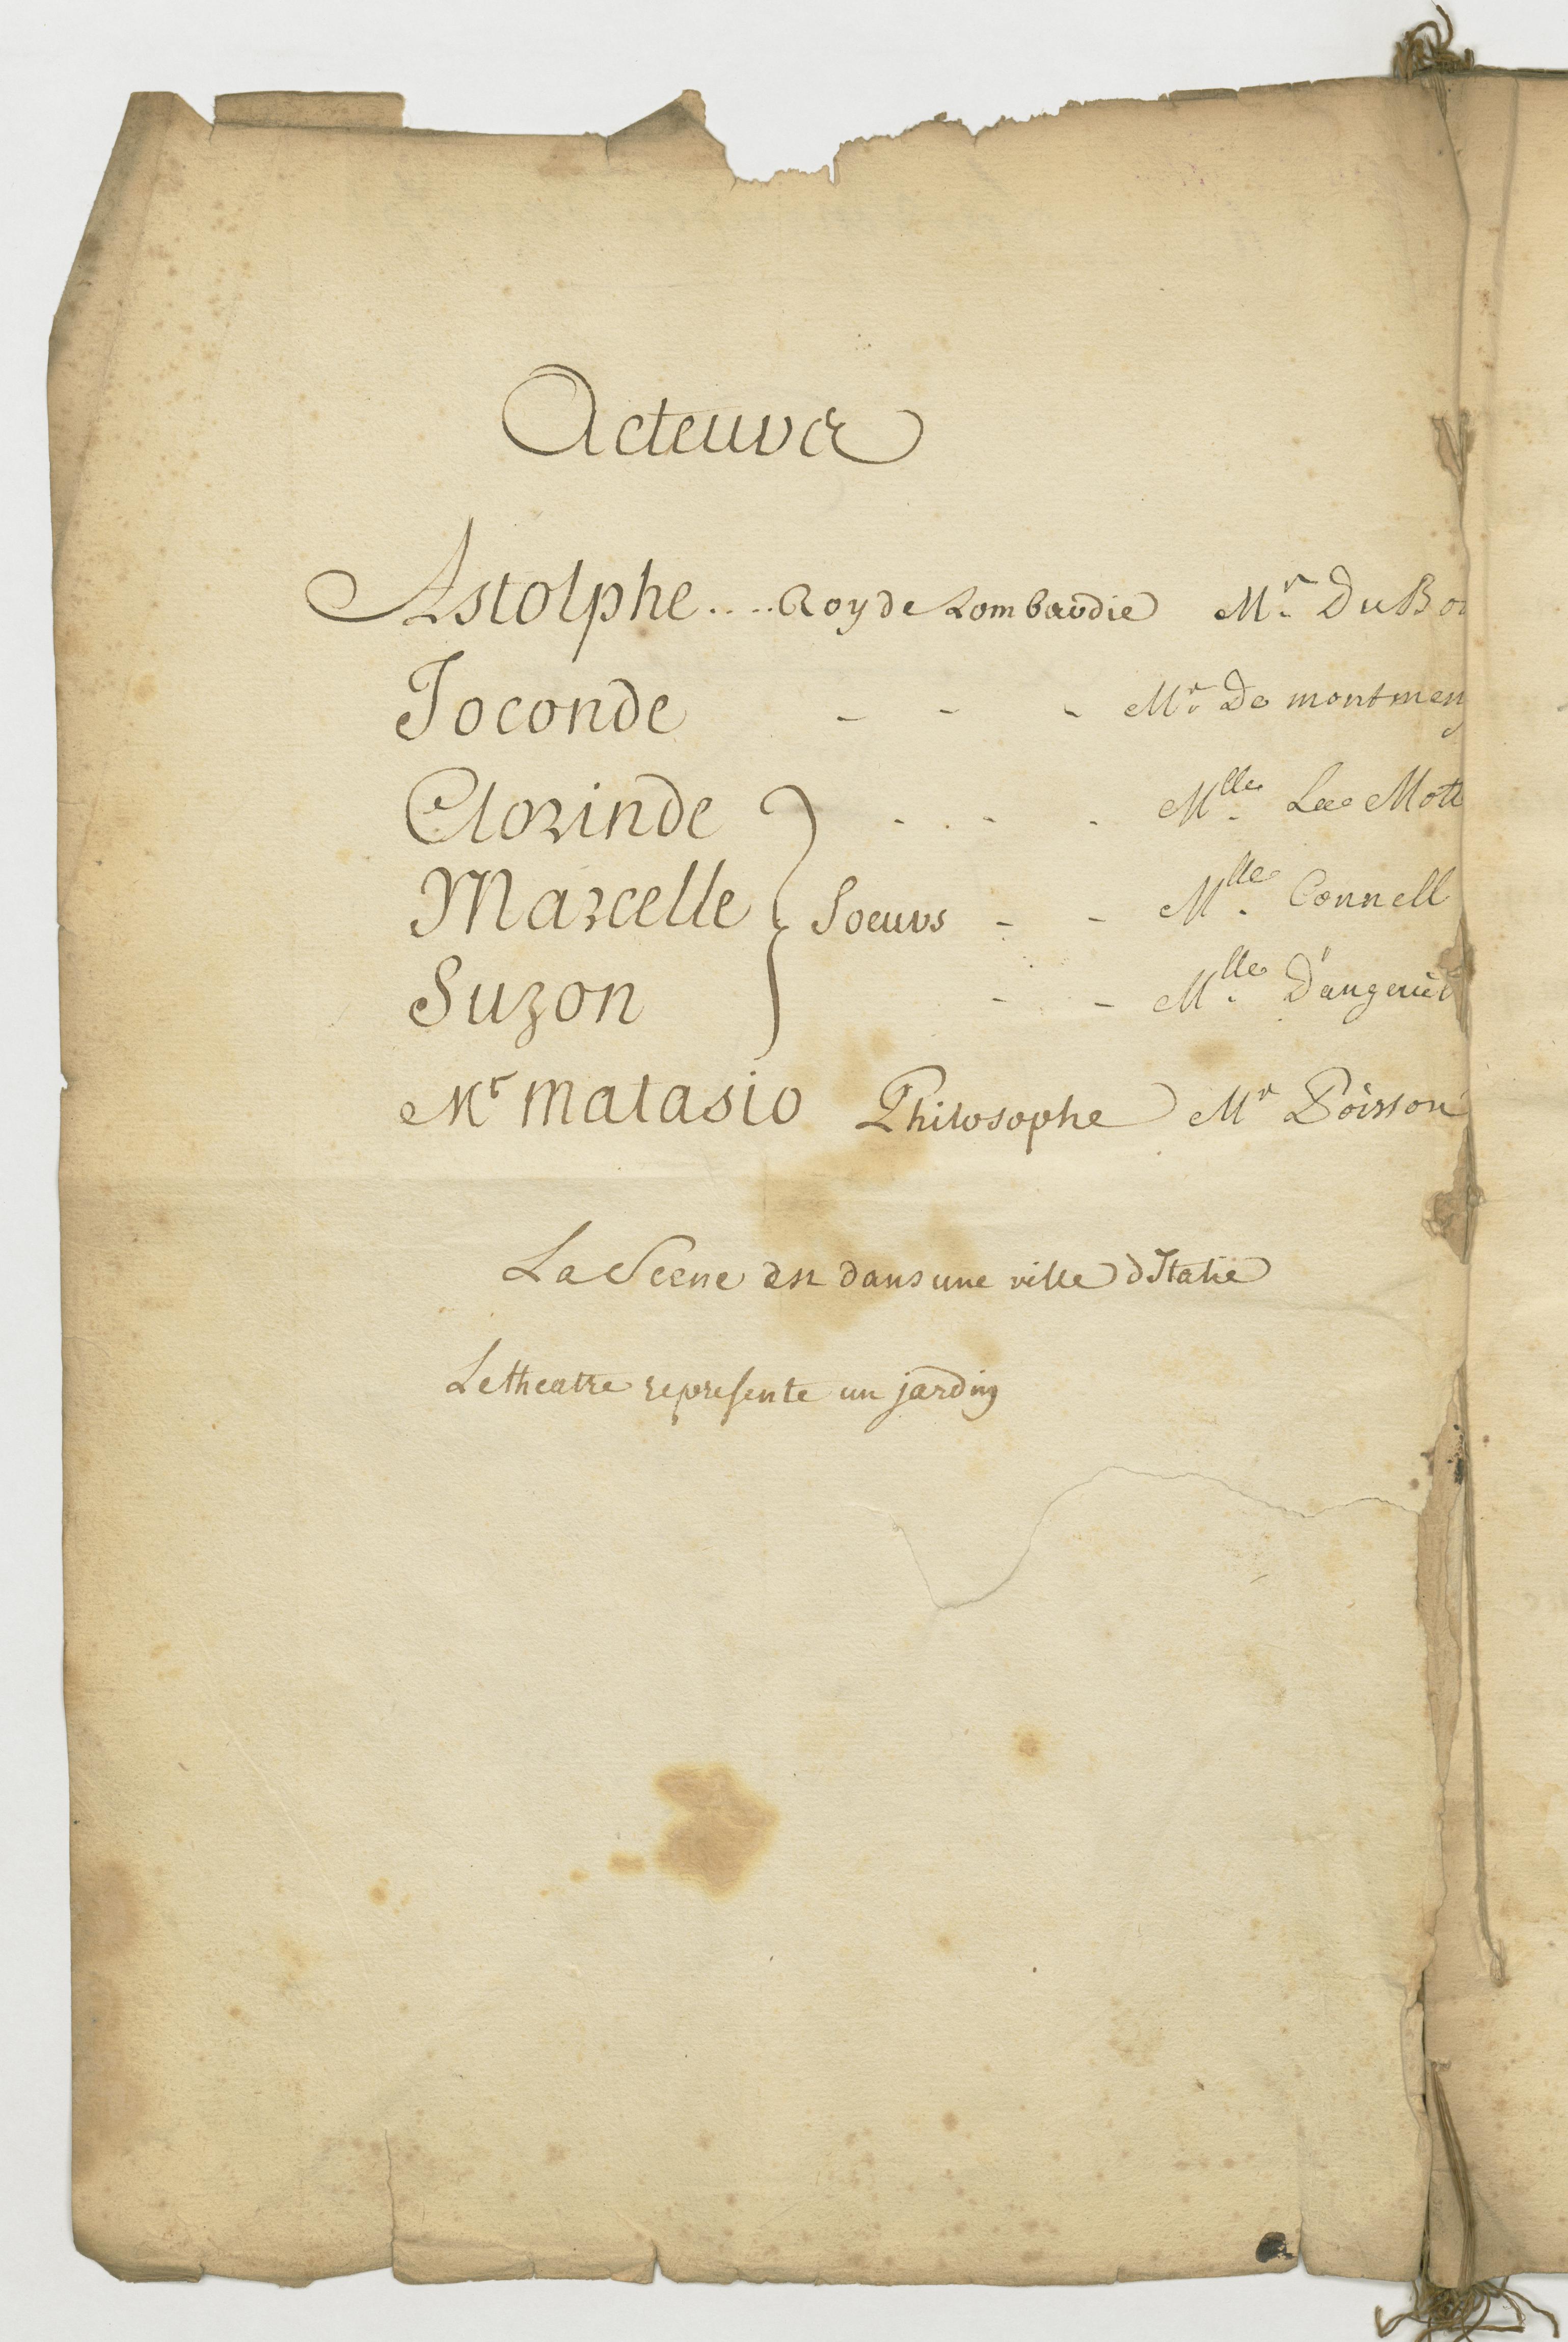 Acteurs
Astolphe .... Roy de Lombardie Mr. Du Bo
Joconde - - - Mr. De montmeny
Clorinde - - - Mlle. La Mott
Marcelle } Soeurs - - Mlle. Connell
Suzon - - Mlle. D'angevil
Mr Matasio Philosophe Mr Poisson
La Scene est dans une ville d'Italie
Le theatre represente un jardin